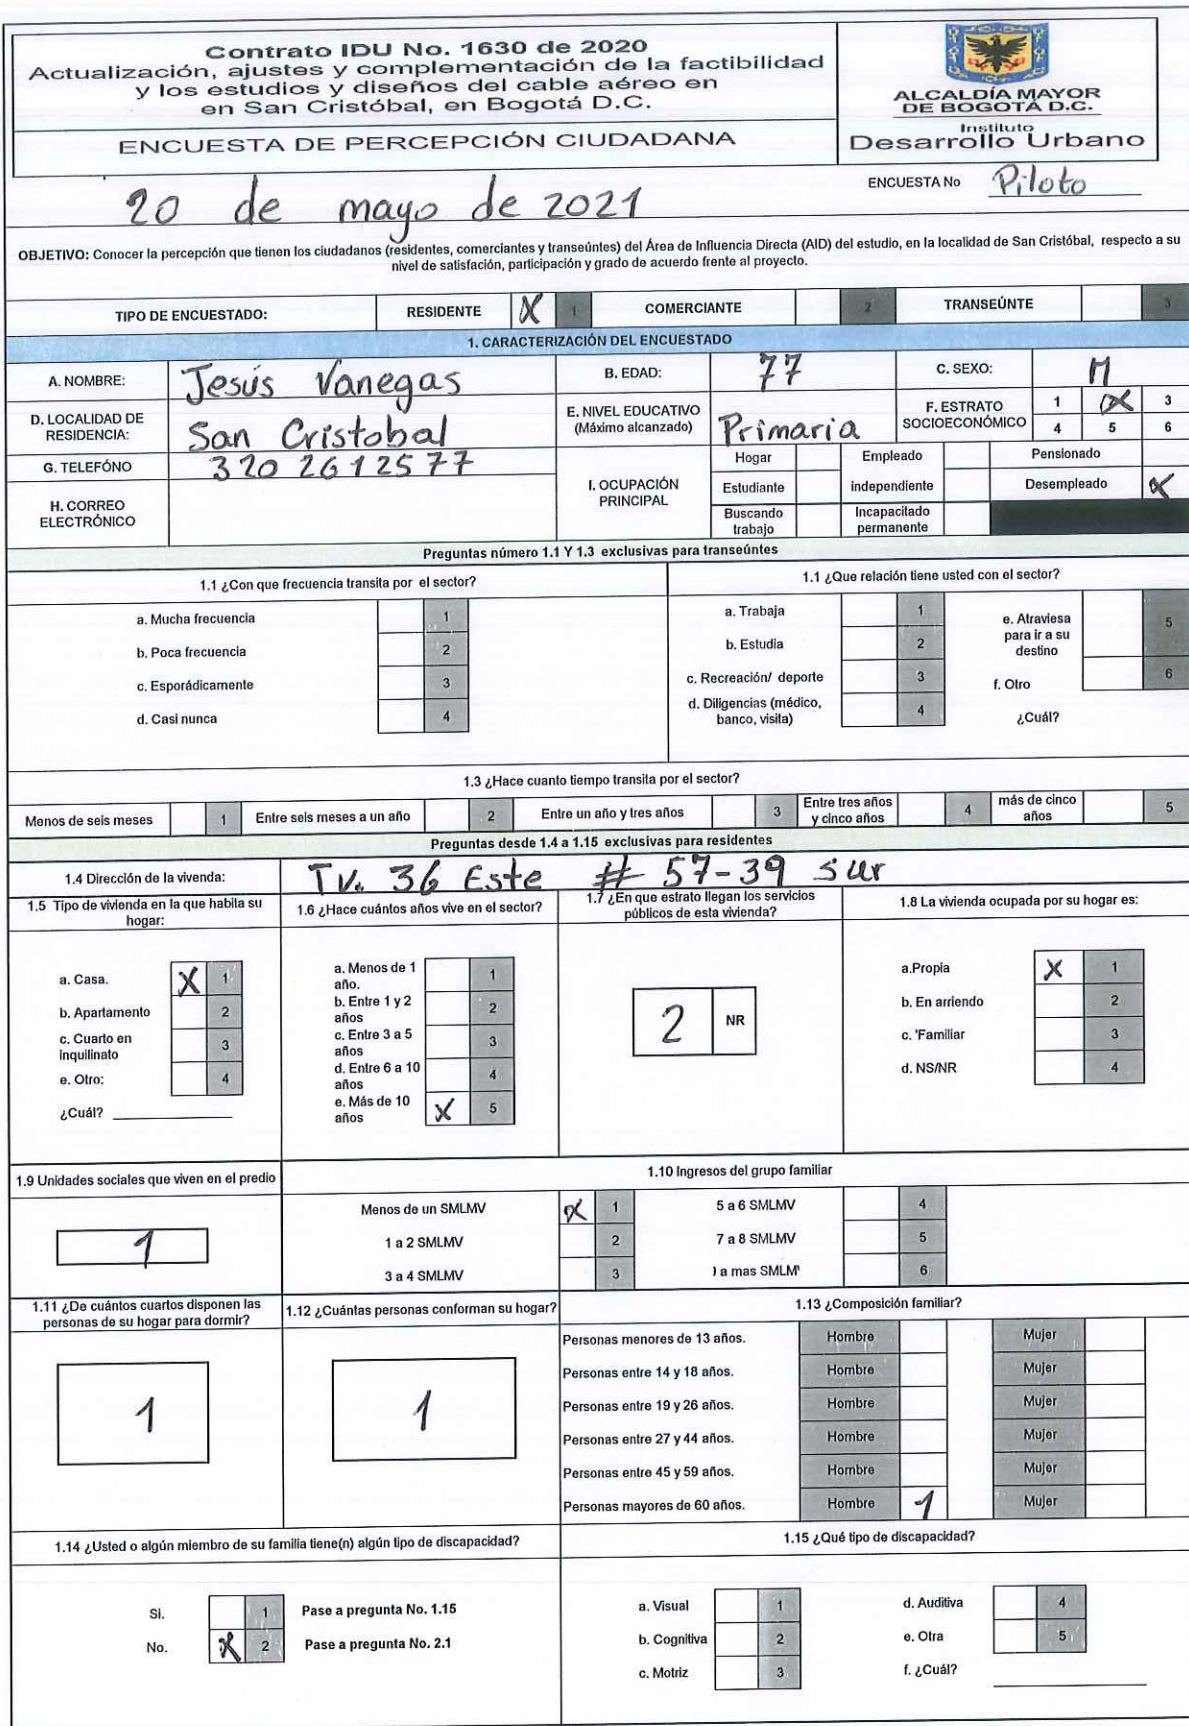 Contrato IDU No. 1630 de 2020
Actualización, ajustes y complementación de la factibilidad
y los estudios y diseños del cable aéreo en
en San Cristóbal, en Bogotá D.C.
ENCUESTA DE PERCEPCIÓN CIUDADANA
ALCALDÍA MAYOR
DE BOGOTÁ D.C.
Instituto
Desarrollo Urbano
ENCUESTA No Piloto
20 de mayo de 2021
OBJETIVO: Conocer la percepción que tienen los ciudadanos (residentes, comerciantes y transeúntes) del Área de Influencia Directa (AID) del estudio, en la localidad de San Cristóbal, respecto a su
nivel de satisfacción, participación y grado de acuerdo frente al proyecto.
TIPO DE ENCUESTADO: RESIDENTE X 1 COMERCIANTE 2 TRANSEÚNTE 3
1. CARACTERIZACIÓN DEL ENCUESTADO
A. NOMBRE: Jesús Vanegas B. EDAD: 77 C. SEXO: M
D. LOCALIDAD DE RESIDENCIA: San Cristobal
E. NIVEL EDUCATIVO (Máximo alcanzado) Primaria
F. ESTRATO SOCIOECONÓMICO 1 X 3
4 5 6
G. TELEFÓNO 320 2612577
H. CORREO ELECTRÓNICO
I. OCUPACIÓN PRINCIPAL
Hogar Empleado Pensionado
Estudiante independiente Desempleado X
Buscando trabajo Incapacitado permanente
Preguntas número 1.1 Y 1.3 exclusivas para transeúntes
1.1 ¿Con que frecuencia transita por el sector?
a. Mucha frecuencia 1
b. Poca frecuencia 2
c. Esporádicamente 3
d. Casi nunca 4
1.1 ¿Que relación tiene usted con el sector?
a. Trabaja 1
b. Estudia 2
c. Recreación/ deporte 3
d. Diligencias (médico, banco, visita) 4
e. Atraviesa para ir a su destino 5
f. Otro 6
¿Cuál?
1.3 ¿Hace cuanto tiempo transita por el sector?
Menos de seis meses 1 Entre seis meses a un año 2 Entre un año y tres años 3 Entre tres años y cinco años 4 más de cinco años 5
Preguntas desde 1.4 a 1.15 exclusivas para residentes
1.4 Dirección de la vivenda: TV. 36 Este # 57-39 sur
1.5 Tipo de vivienda en la que habita su hogar:
a. Casa. X 1
b. Apartamento 2
c. Cuarto en inquilinato 3
e. Otro: 4
¿Cuál?
1.6 ¿Hace cuántos años vive en el sector?
a. Menos de 1 año. 1
b. Entre 1 y 2 años 2
c. Entre 3 a 5 años 3
d. Entre 6 a 10 años 4
e. Más de 10 años X 5
1.7 ¿En que estrato llegan los servicios públicos de esta vivienda?
2 NR
1.8 La vivienda ocupada por su hogar es:
a.Propia X 1
b. En arriendo 2
c. 'Familiar 3
d. NS/NR 4
1.9 Unidades sociales que viven en el predio
1
1.10 Ingresos del grupo familiar
Menos de un SMLMV X 1 5 a 6 SMLMV 4
1 a 2 SMLMV 2 7 a 8 SMLMV 5
3 a 4 SMLMV 3 a mas SMLM 6
1.11 ¿De cuántos cuartos disponen las personas de su hogar para dormir?
1
1.12 ¿Cuántas personas conforman su hogar?
1
1.13 ¿Composición familiar?
Personas menores de 13 años. Hombre Mujer
Personas entre 14 y 18 años. Hombre Mujer
Personas entre 19 y 26 años. Hombre Mujer
Personas entre 27 y 44 años. Hombre Mujer
Personas entre 45 y 59 años. Hombre Mujer
Personas mayores de 60 años. Hombre 1 Mujer
1.14 ¿Usted o algún miembro de su familia tiene(n) algún tipo de discapacidad?
SI. 1 Pase a pregunta No. 1.15
No. X 2 Pase a pregunta No. 2.1
1.15 ¿Qué tipo de discapacidad?
a. Visual 1 d. Auditiva 4
b. Cognitiva 2 e. Otra 5
c. Motriz 3 f. ¿Cuál?